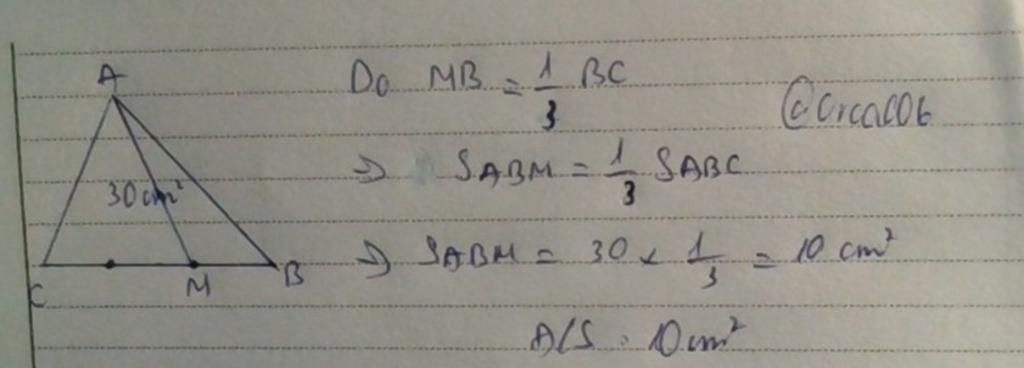 A
30 cm²
C M B
Do MB = 1/3 BC
⇒ SABM = 1/3 SABC
⇒ SABM = 30 × 1/3 = 10 cm²
Đ/S : 10 cm²